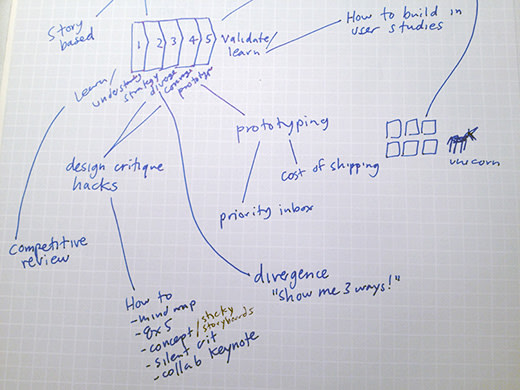 Story
based
How to build in
user studies
1 2 3 4 5
Validate/
learn
Learn/
understand
strategy
diverge
converge
prototype
prototyping
unicorn
design critique
hacks
cost of shipping
priority inbox
competitive
review
divergence
"show me 3 ways!"
How to
- mind map
- 8x5
- concept/sticky
storyboards
- silent crit
- collab keynote